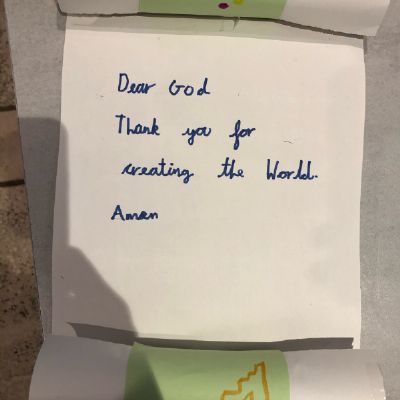 Dear God
Thank you for
creating the World.
Amen